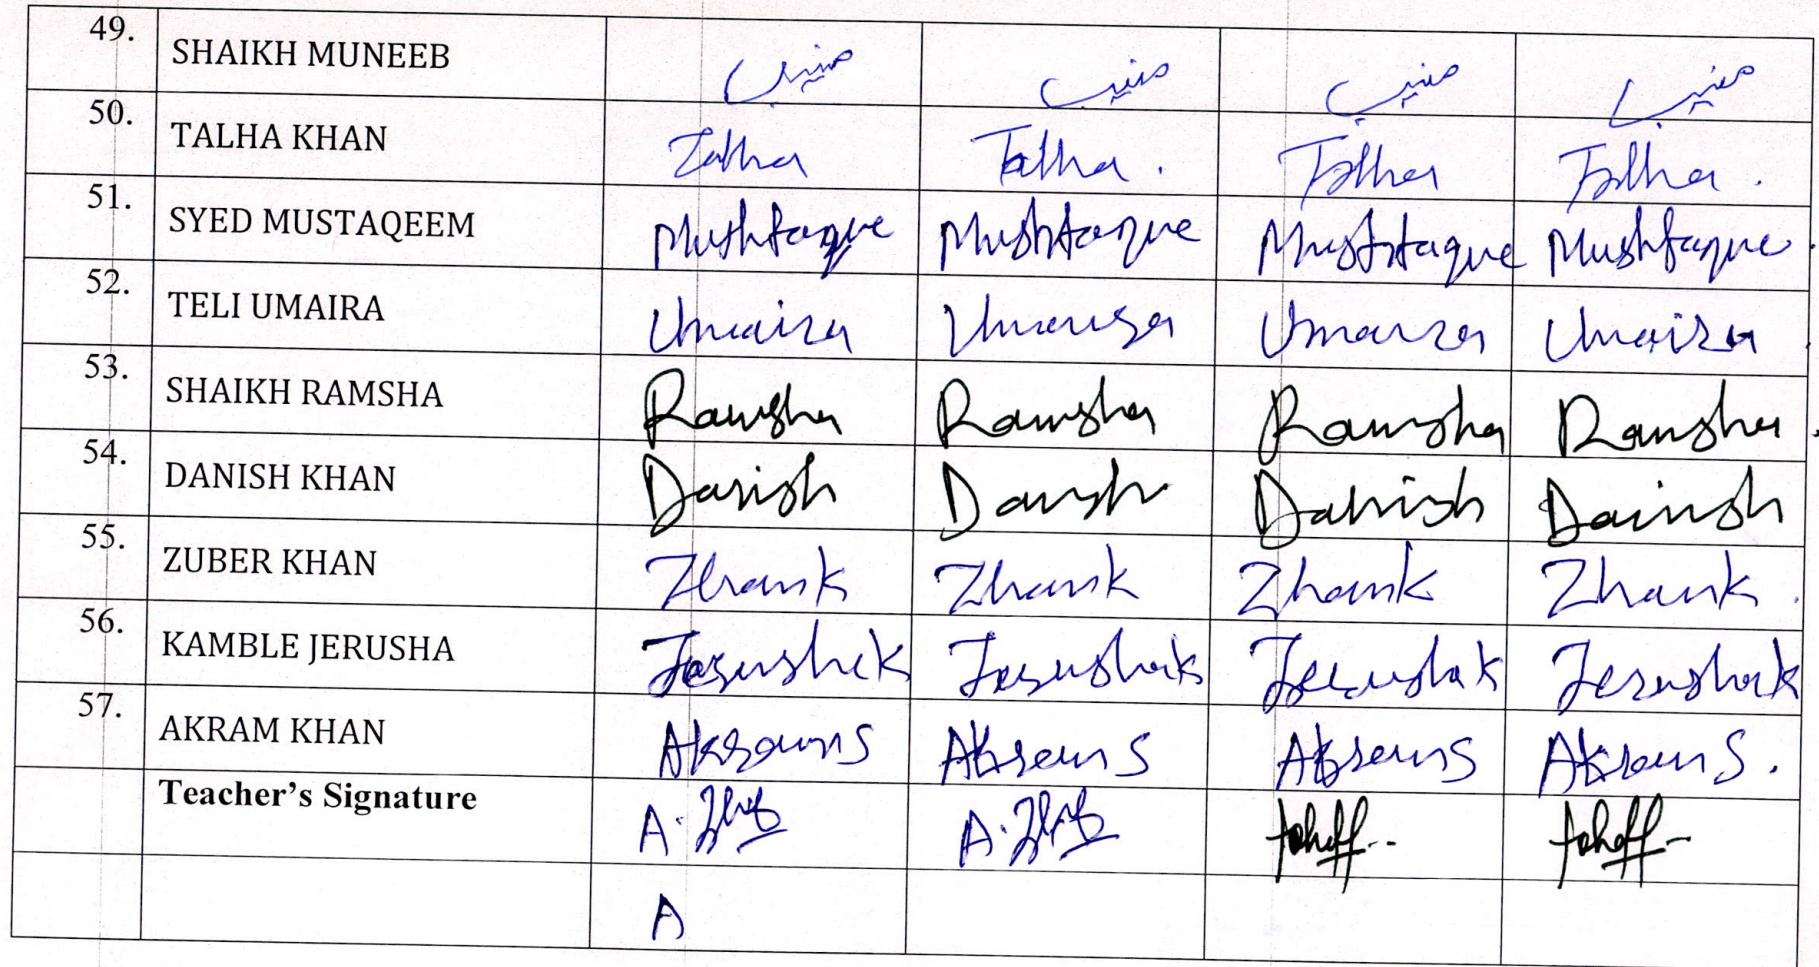 49. SHAIKH MUNEEB منیب منیب منیب منیب
50. TALHA KHAN Talha Talha. Talha Talha.
51. SYED MUSTAQEEM Mushtaque Mushtaque Mushtaque Mushtaque.
52. TELI UMAIRA Umaira Umaira Umaira Umaira
53. SHAIKH RAMSHA Ramsha Ramsha Ramsha Ramsha.
54. DANISH KHAN Danish Danish Danish Danish
55. ZUBER KHAN Zkhank Zkhank Zkhank Zkhank.
56. KAMBLE JERUSHA Jerushak Jerushak Jerushak Jerushak
57. AKRAM KHAN Akram S Akram S Akram S Akram S.
Teacher's Signature A. A.
A